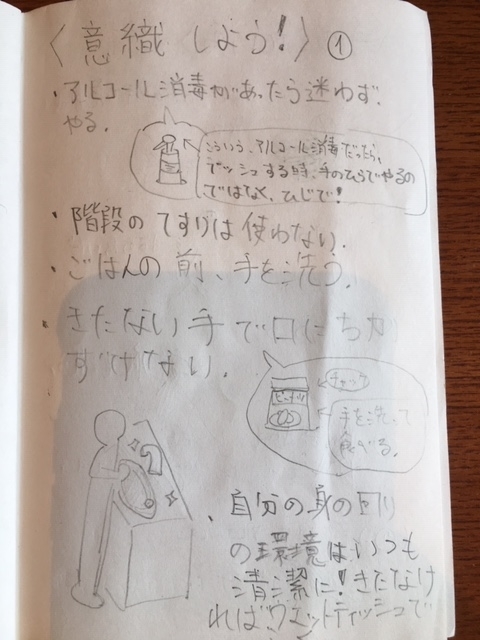 〈意織しよう!〉①
・アルコール消毒があったら迷わず、
やる。
こういう、アルコール消毒だったら、
プッシュする時、手のひらでやるの
ではなく、ひじで!
・階段のてすりは使わない。
・ごはんの前、手を洗う。
・きたない手で口にちか
ずけない。
チャック
ピーナッツ
手を洗って
食べる。
、自分の身の回り
の環境はいつも
清潔に!きたなけ
ればウエットティッシュで